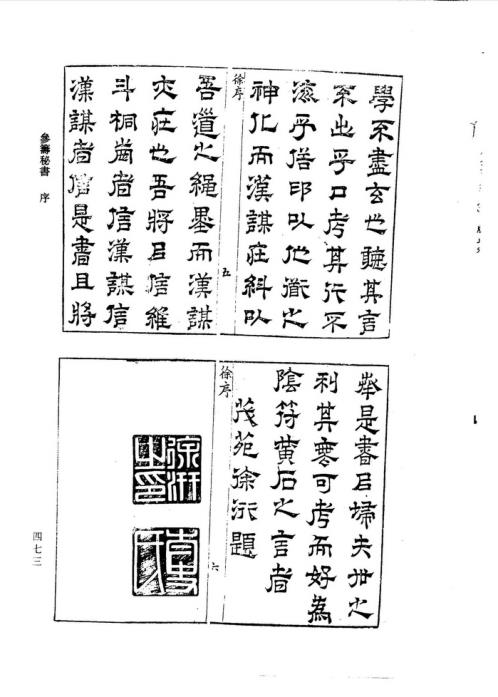 學不盡玄也聽其言
不出乎口考其行不
乎俗印以他道之
神化而漢謀在糾以
徐序
五
吾道之繩墨而漢謀
在也吾將㠯信維
斗桐齒者信漢謀信
漢謀者信是書且將
參籌秘書 序
舉是書㠯掃夫世之
利其可考而好為
陰符黃石之言者
茂苑徐汧題
徐序
六
徐汧之印
四七三